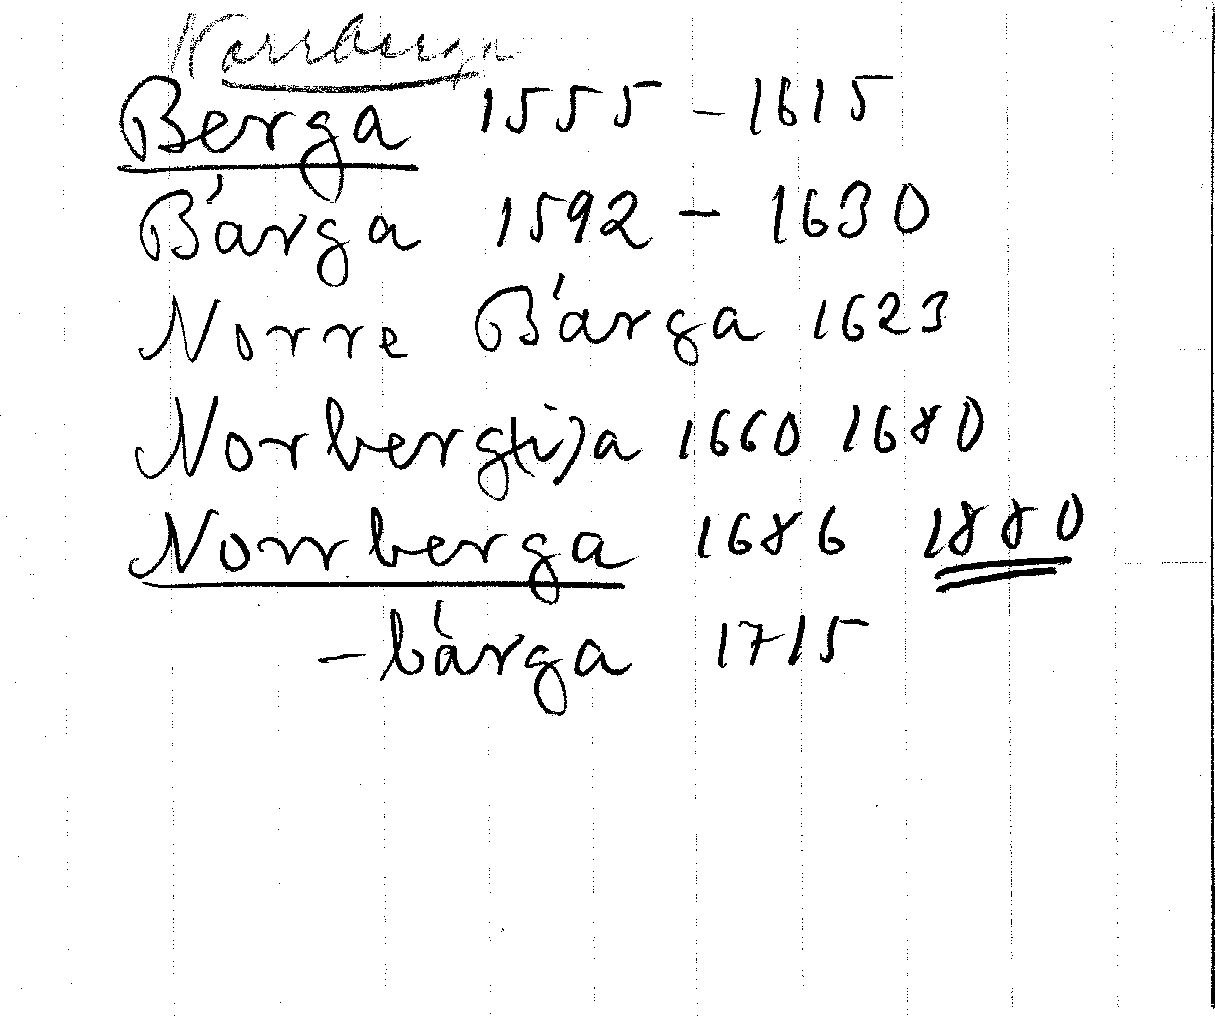 Norrberga
Berga 1555 – 1615
Bárga 1592 – 1630
Norre Bárga 1623
Norberg(i)a 1660 1680
Norrberga 1686 1880
– bárga 1715